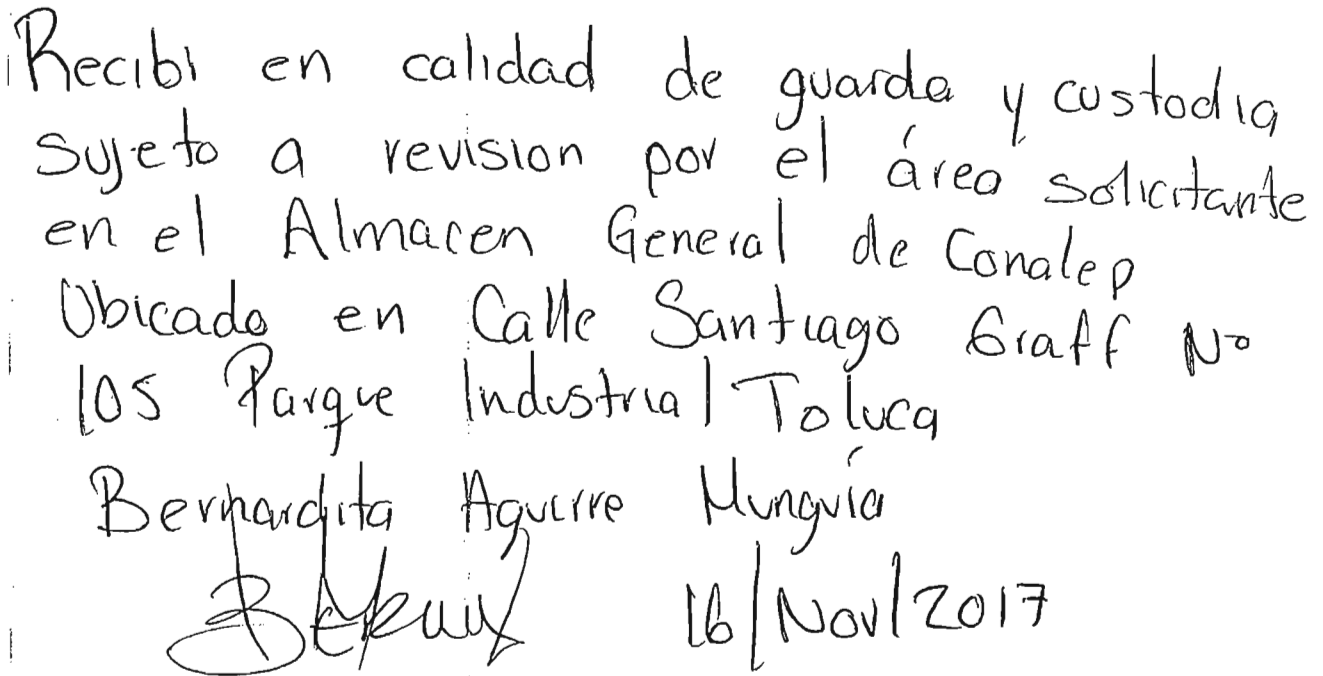 Recibi en calidad de guarda y custodia
sujeto a revision por el área solicitante
en el Almacen General de Conalep
Ubicado en Calle Santiago Graff No
105 Parque Industrial Toluca
Bernardita Aguirre Munguía
16/Nov/2017